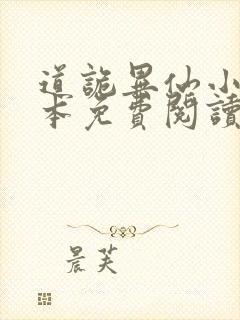 道詭異仙小
本免費閱讀
晨芙